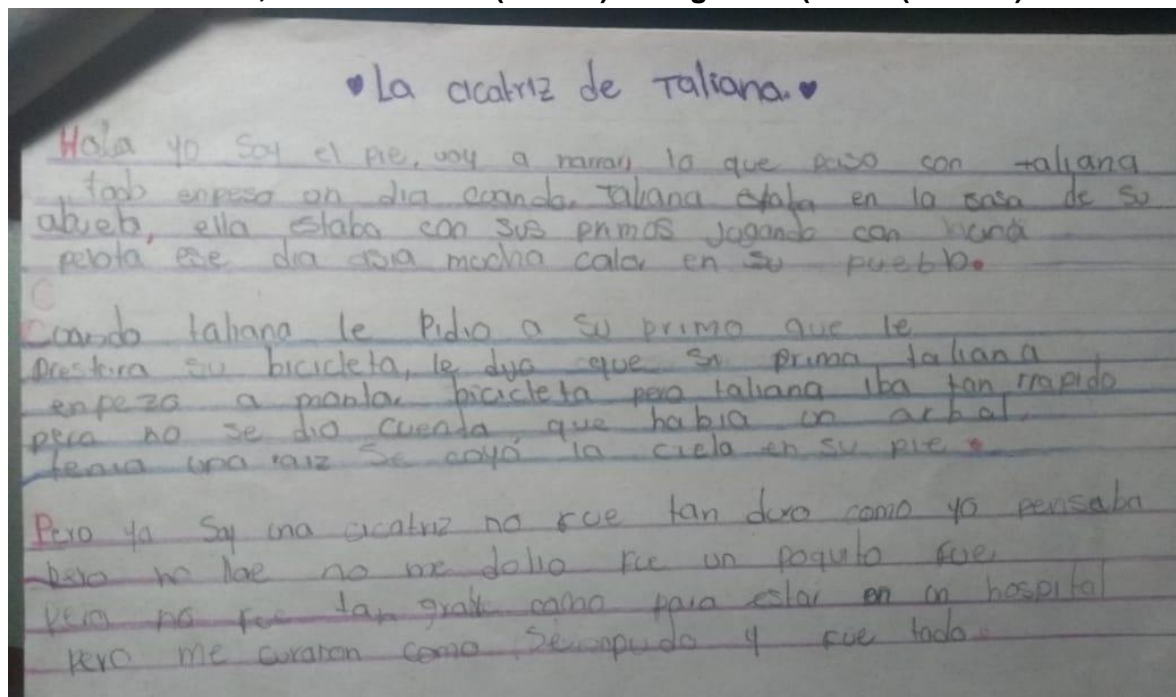 La cicatriz de Taliana.
Hola yo soy el pie, voy a narrar, lo que paso con taliana
todo enpeso un dia cuando, taliana estaba en la casa de su
abuela, ella estaba con sus primos jugando con
pelota ese dia asia mucha calor en su pueblo.
Cuando taliana le Pidio a su primo que le
prestara su bicicleta, le dijo que si prima taliana
enpezo a montar bicicleta pero taliana iba tan rrapido
pero no se dio cuenta, que habia un arbol
tenia una raiz se cayó la en su pie.
Pero yo soy una cicatriz no fue tan duro como yo pensaba
pero no no me dolio fue un poquito fue,
pero no fue tan grave como para estar en un hospital
pero me curaron como y fue todo.